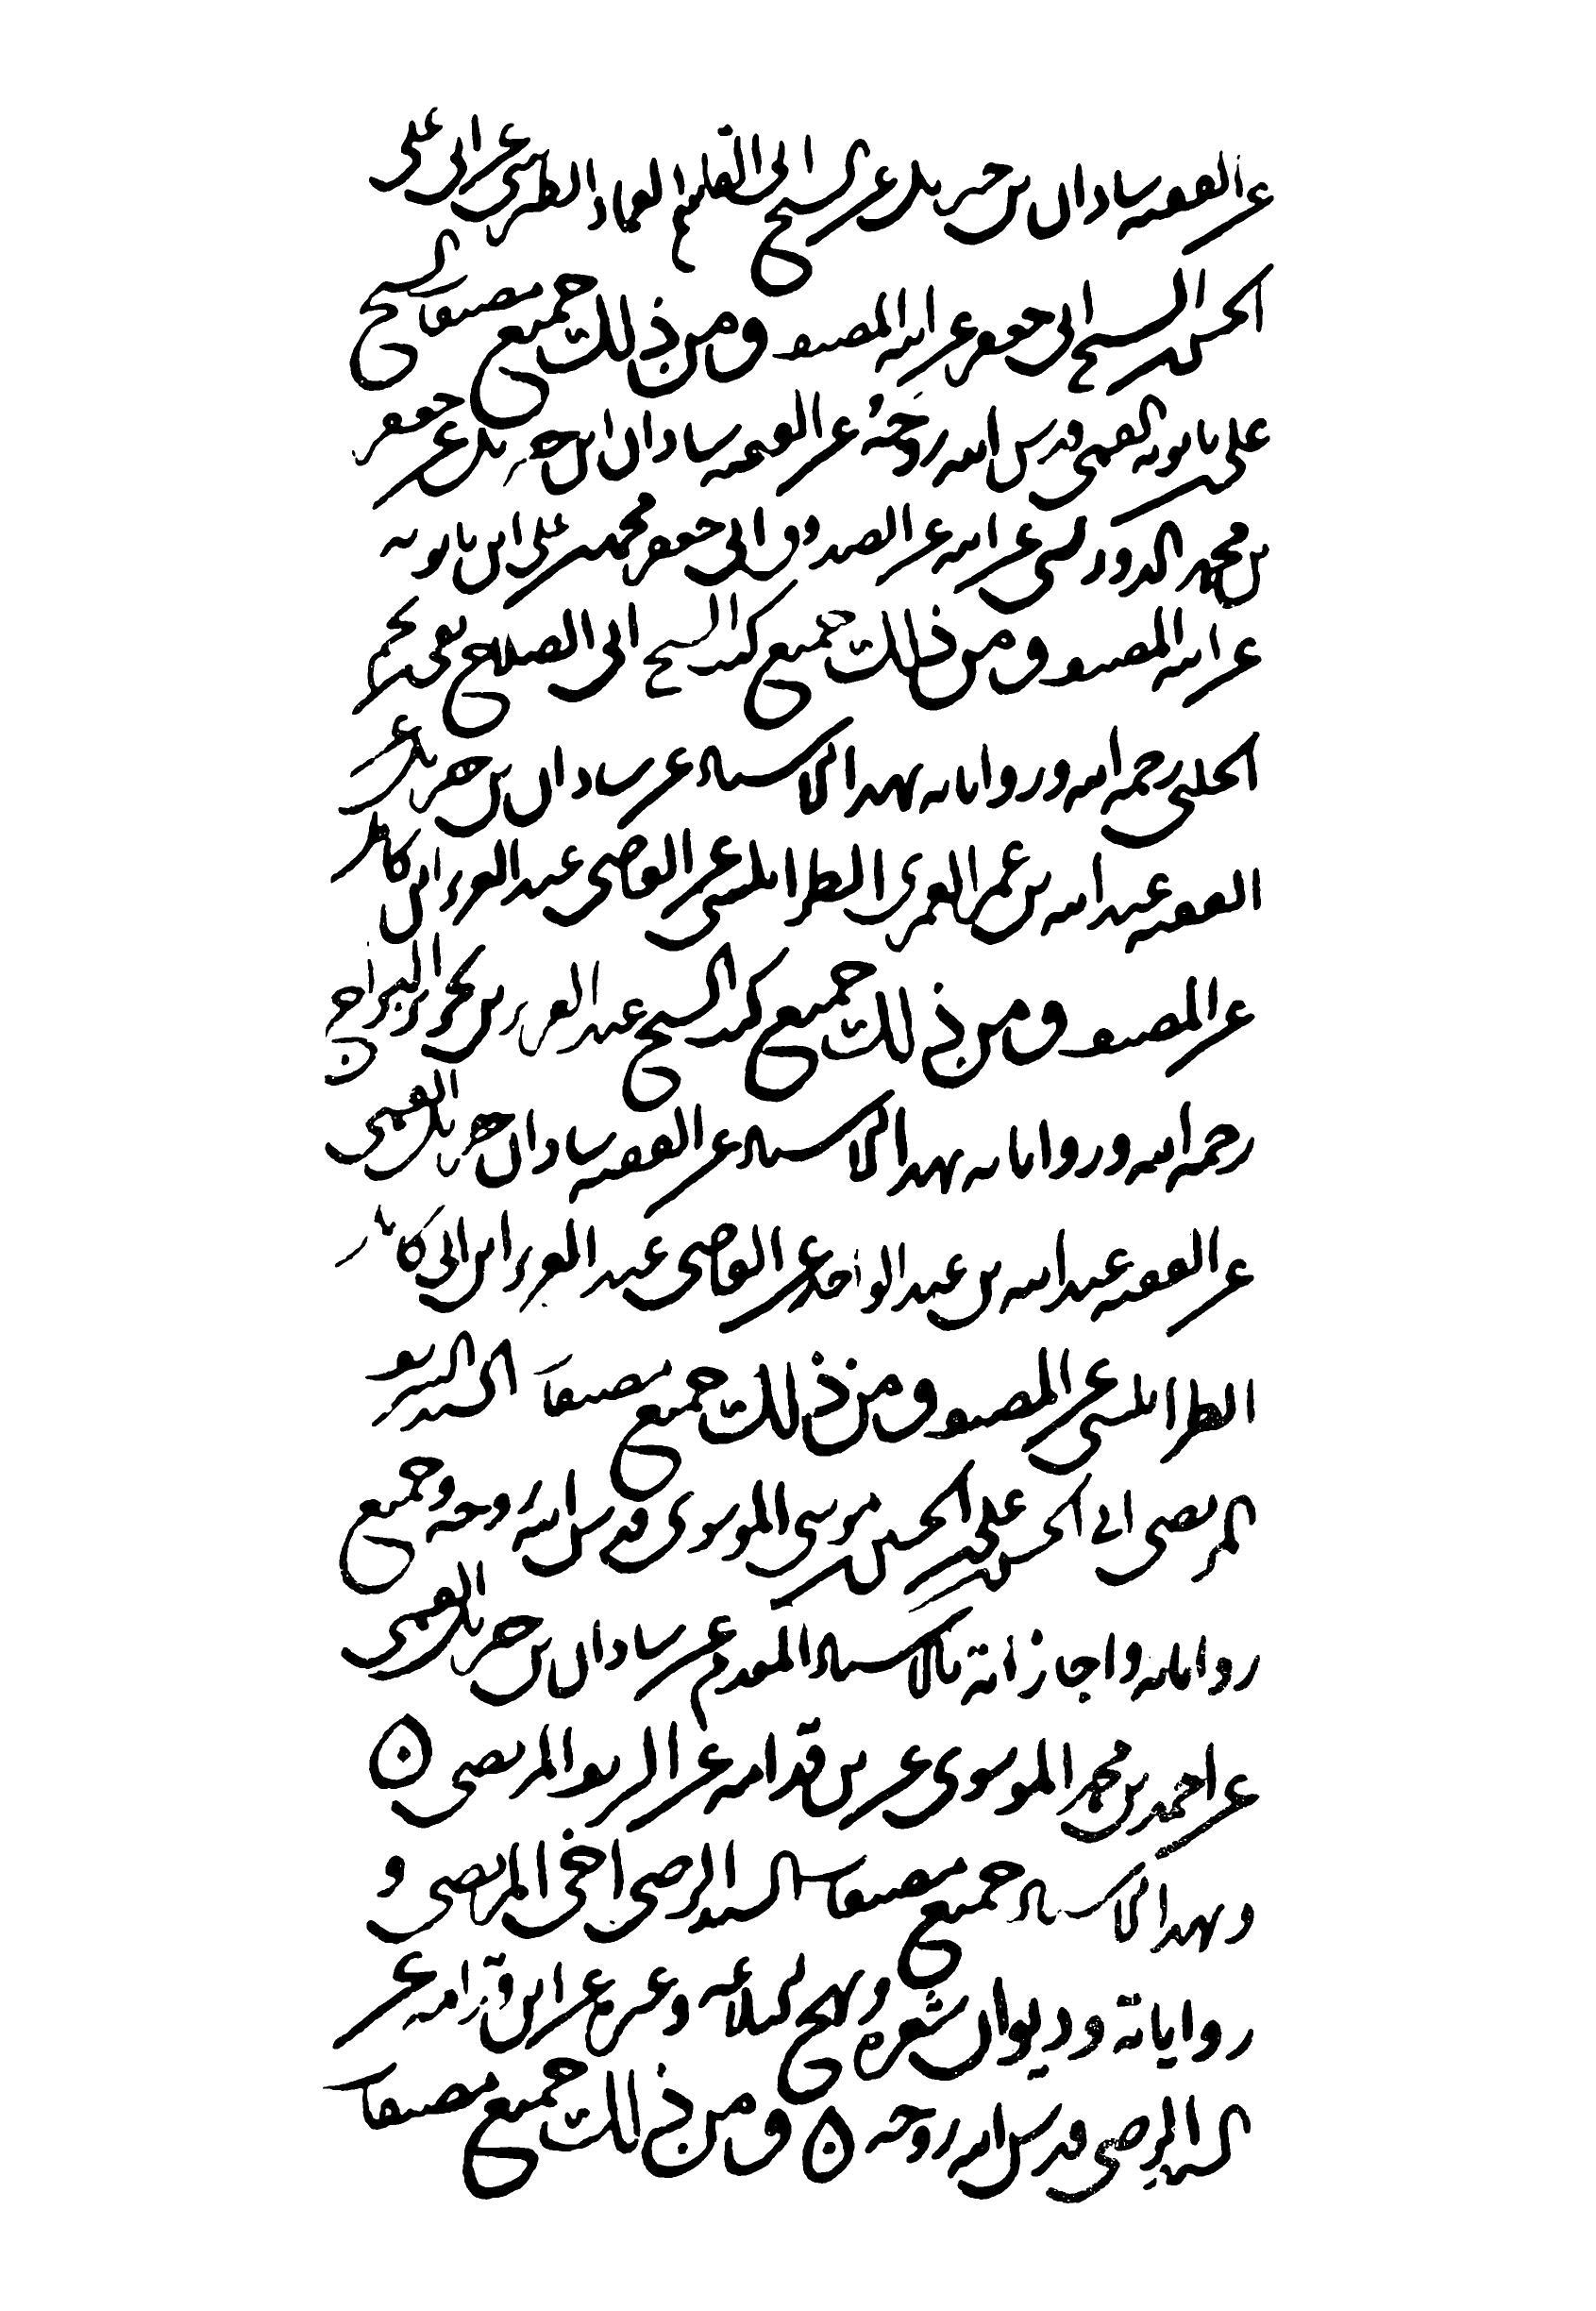 عن الفقيه شاذان بن جبريل عن الشيخ ابى القاسم العماد الطبرى عن ابى على
الحسن بن الشيخ ابى جعفر عن ابيه المصنف ومن ذلك جميع مصنفات الشيخ
على بن بابويه القمى قدس الله روحه عن الفقيه شاذان ابن جبريل عن جعفر
بن محمد الدوريستى عن ابيه عن الصدوق ابى جعفر محمد بن على ابن بابويه
عن ابيه المصنف ومن ذلك جميع كتب الشيخ ابى الصلاح تقى بن نجم
الحلبى رحمه الله ورواياته بهذا الاسناد عن شاذان بن جبريل عن
الفقيه عبد الله بن عمر العمرى الطرابلسى عن القاضى عبد العزيز ابن كامل
عن المصنف ومن ذلك جميع كتب الشيخ عبد العزيز بن نحرير البراج
رحمه الله ورواياته بهذا الاسناد عن الفقيه شاذان جبريل القمى
عن الفقيه عبد الله بن عبد الواحد عن القاضى عبد العزيز ابن ابى كامل
الطرابلسى عن المصنف ومن ذلك جميع مصنفات السيد الشريف
المرتضى ابى الحسن على بن الحسين بن موسى الموسوى قدس الله روحه وجميع
رواياته واجازاته بالاسناد المتقدم عن شاذان بن جبريل القمى
عن احمد بن محمد الموسوى عن بن قدامه عن الشريف المرتضى ن
وبهذا الاسناد جميع مصنفات السيد الرضى اخى المرتضى و
رواياته وديوان شعره ونهج البلاغه وعن عن ابن قدامه عن
السيد الرضى قدس الله روحه ن ومن ذلك جميع مصنفات